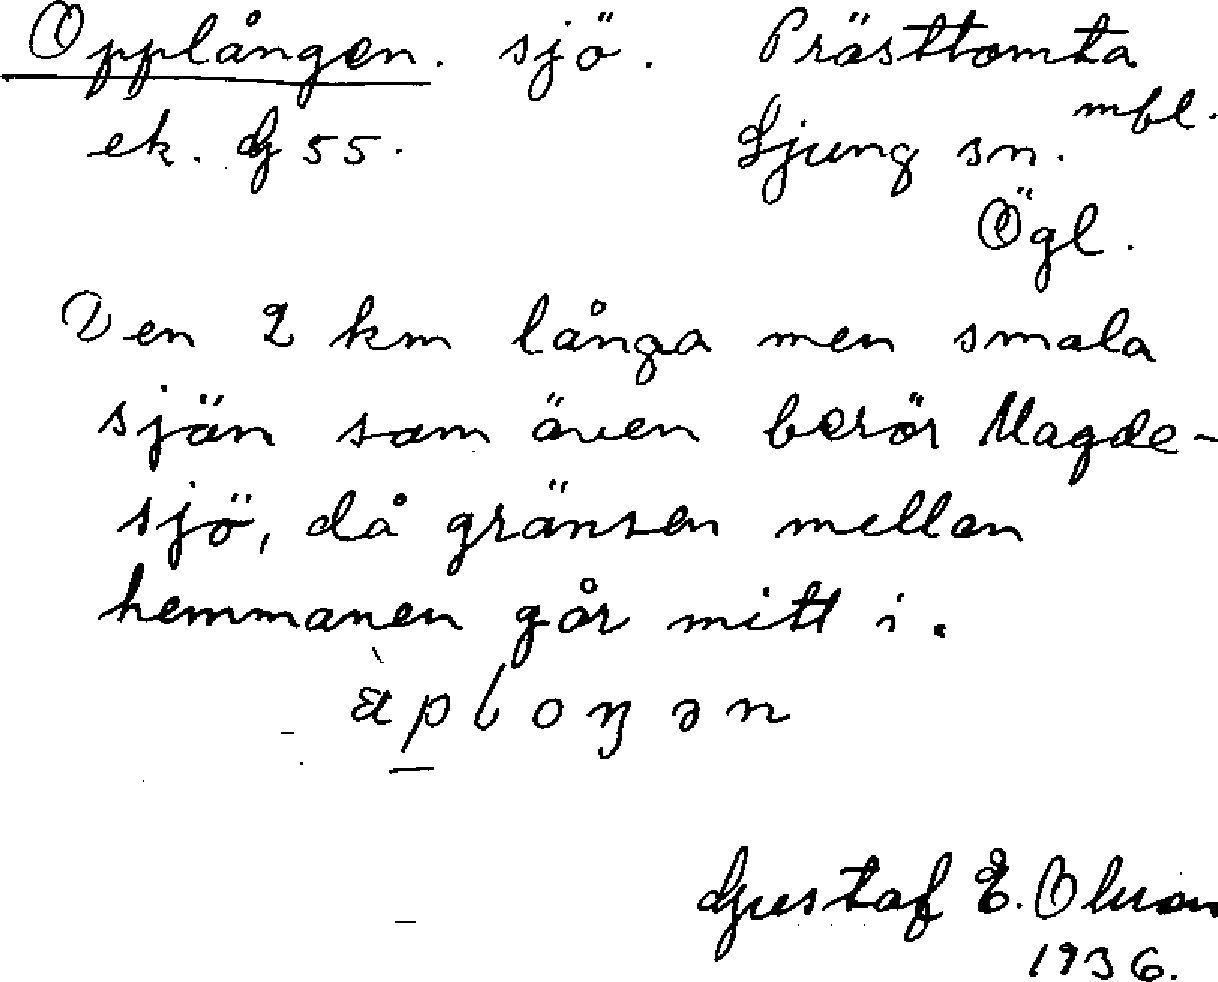 Opplången. sjö. Prästtomta
mbl.
ek. G 55. Ljung sn.
Ögl.
Den 2 km långa men smala
sjön som även berör Magde-
sjö, då gränsen mellan
hemmanen går mitt i.
Gustaf E. Olsson
1936.